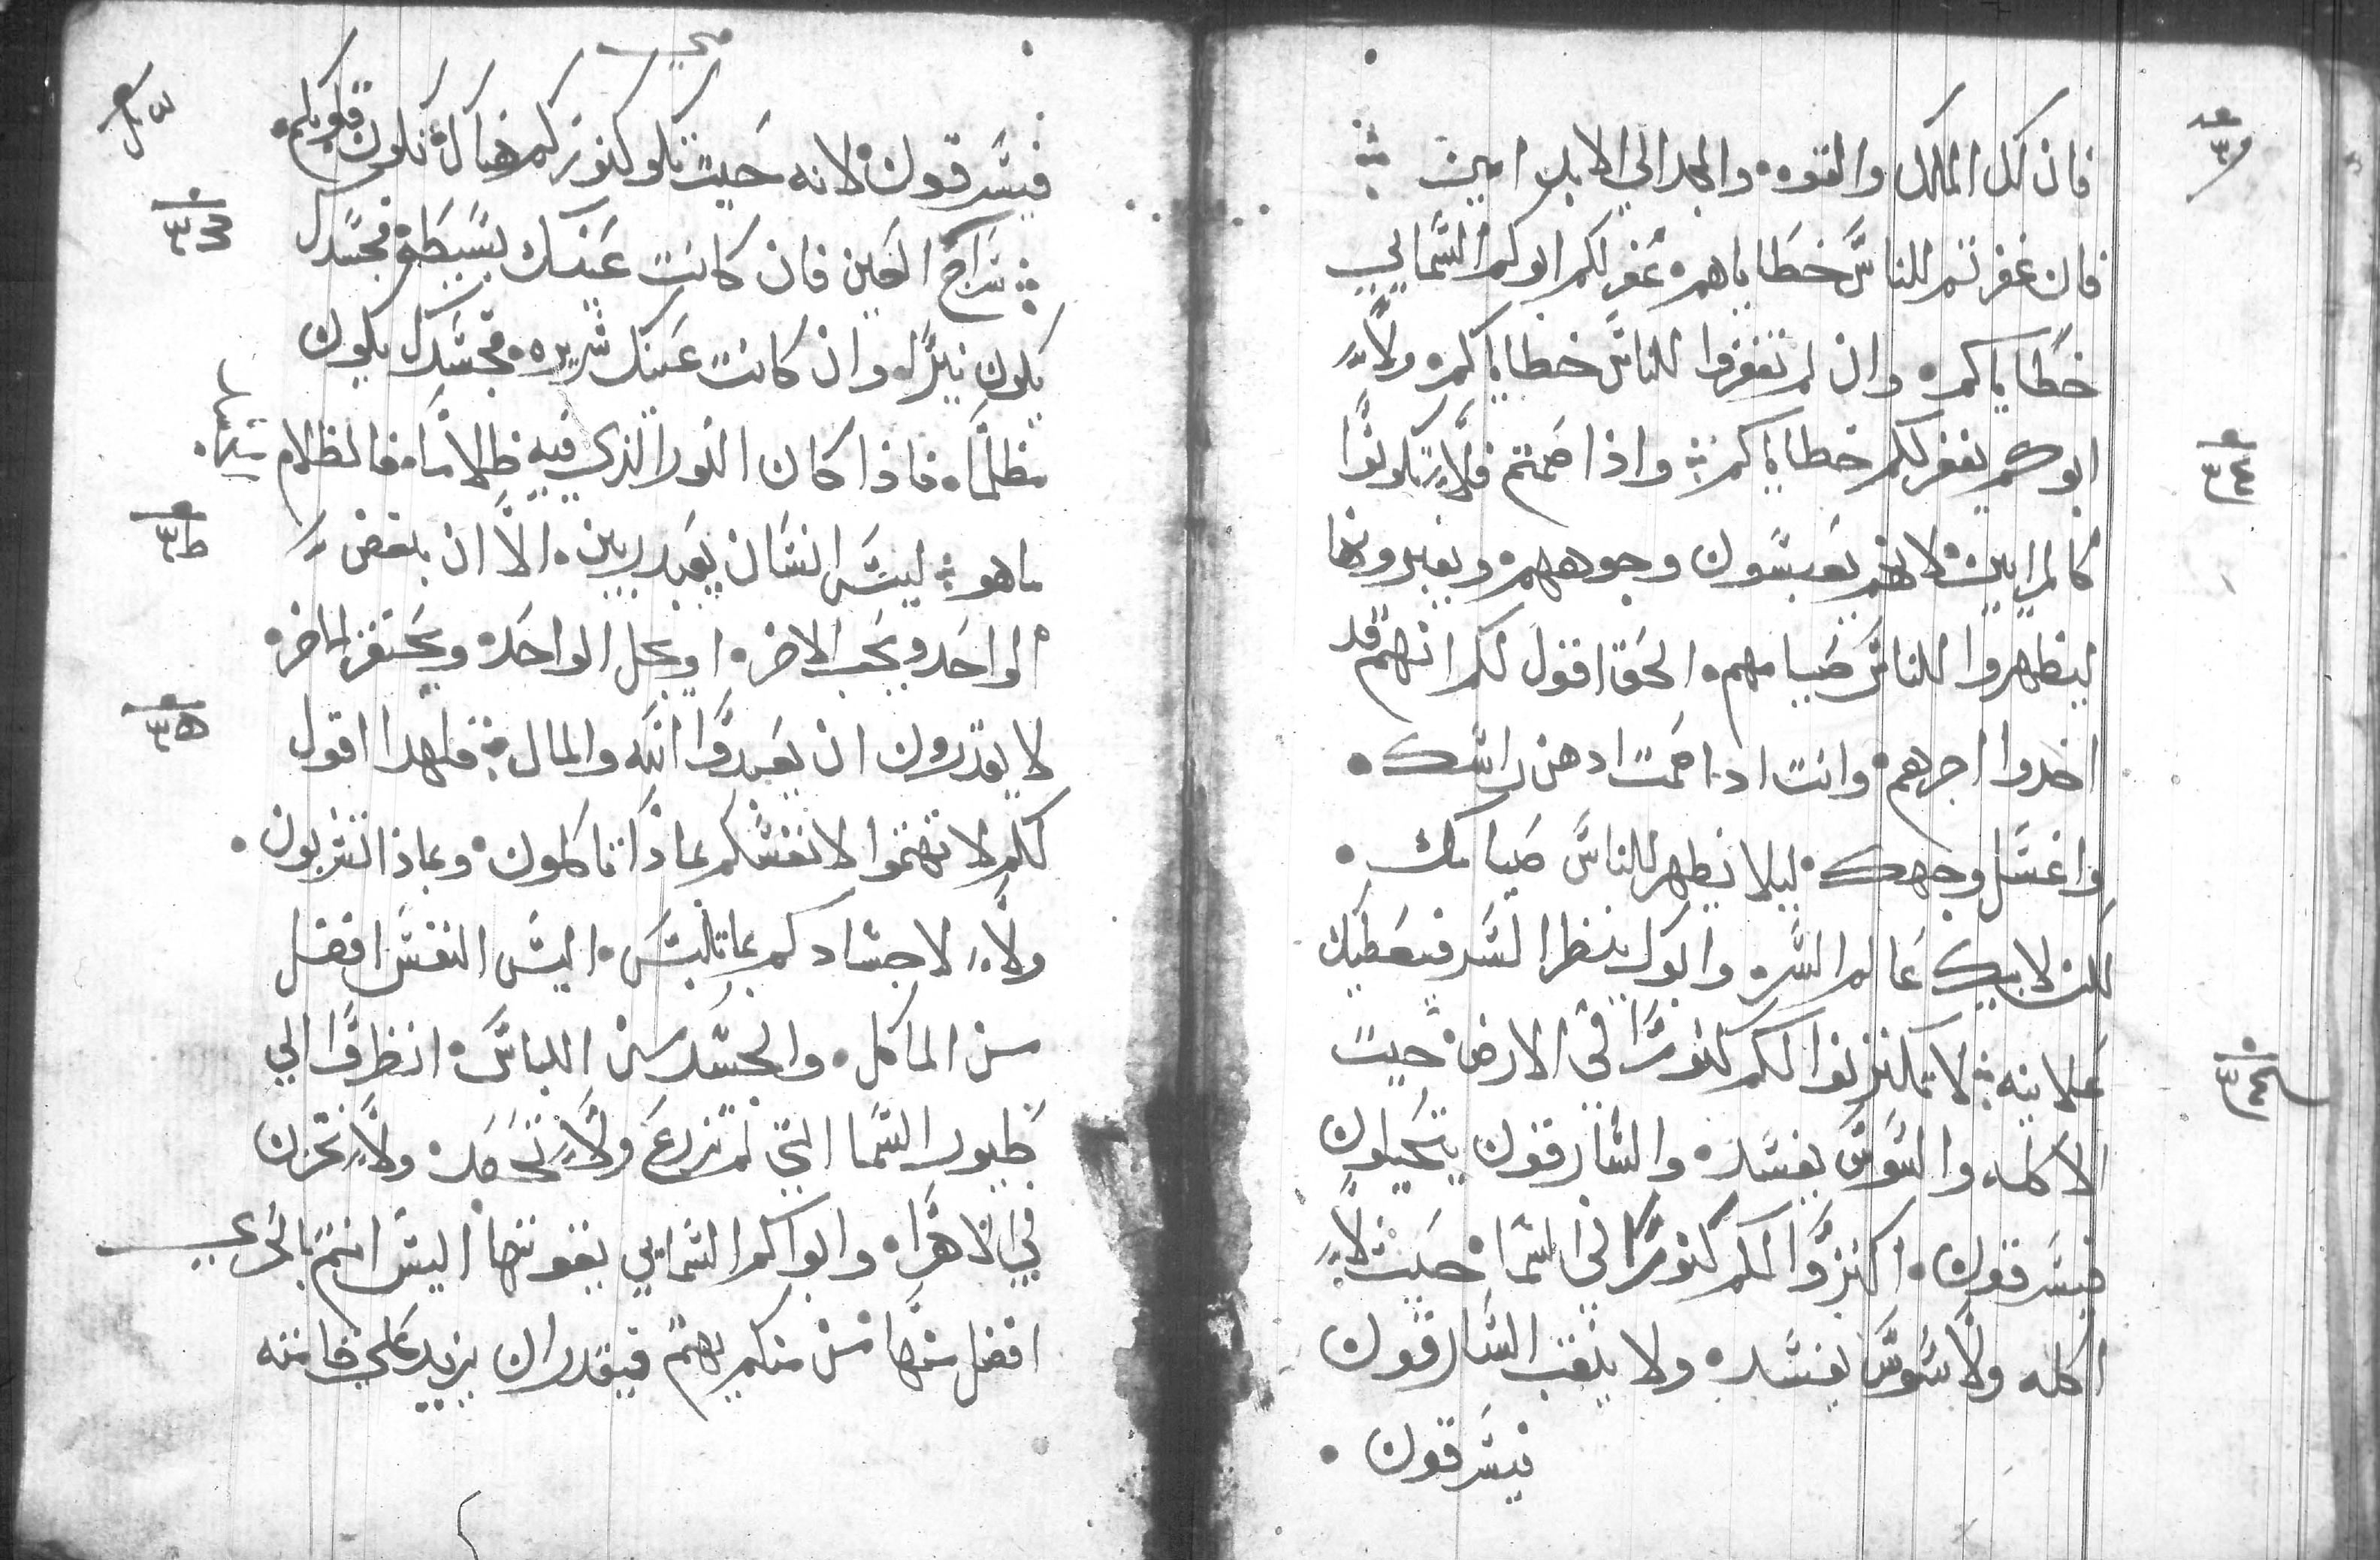 فان لك الملك والقوه والمجد الي الابد امين
فان غفرتم للناس خطاياهم غفر لكم ابوكم السمايي
خطاياكم وان لم تغفروا للناس خطاياكم ولا
ابوكم يغفر لكم خطاياكم واذا صمتم فلا تكونوا
كالمرايين لانهم يعبسون وجوههم ويغيرونها
ليظهروا للناس صيامهم الحق اقول لكم انهم قد
اخدوا اجرهم وانت ادا صمت ادهن راسك
واغسل وجهك ليلا يظهر للناس صيامك
لكن لابيك عالم السر وابوك ينظر السر فيعطيك
علانيه لا تكنزوا لكم كنوزا في الارض حيث
الاكله والسوس يفسد والسارقون يتحيلون
فيسرقون اكنزوا لكم كنوزا في السما حيث لا
اكله ولا سوس يفسد ولا ينقب السارقون
فيسرقون
فيسرقون لانه حيث تكو كنوزكم هناك تكون قلوبكم
سراج العين فان كانت عينك بسيطة فجسدك
يكون نيرا وان كانت عينك شريره فجسدك يكون
مظلما فاذا كان النور الذي فيه ظلاما فالظلام
ماهو ليس انسان يعبد ربين الا ان يبغض
الواحد ويحب الاخر او يجل الواحد ويحتقر الاخر
لا يقدرون ان يعبدوا الله والمال فلهدا اقول
لكم لا تهتموا لانفسكم بماذا تاكلون وبماذا تشربون
ولا لاجسادكم بما تلبس اليس النفس افضل
من الماكل والجسد من اللباس انظروا الي
طيور السما التي لم تزرع ولا تحصد ولا تخزن
في الاهرا وابواكم السمايي يقوتها اليس انتم بالحري
افضل منها من منكم يهتم فيقدر ان يزيد علي قامته